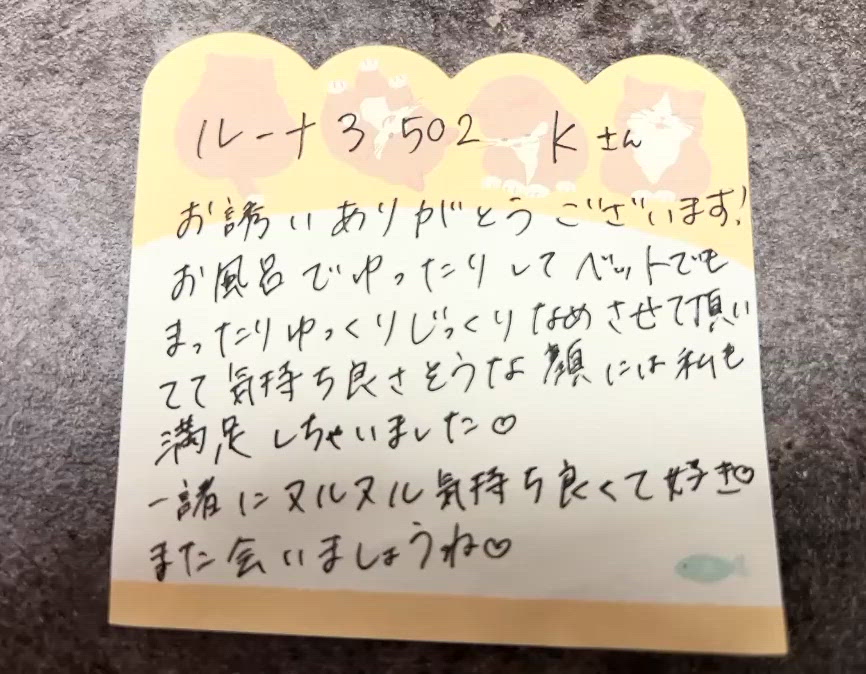 ルーナ3 502 Kさん
お誘いありがとうございます!
お風呂でゆったりしてベットでも
まったりゆっくりじっくりなめさせて頂い
てて気持ち良さそうな顔には私も
満足しちゃいました♡
一諸にヌルヌル気持ち良くて好き♡
また会いましょうね♡